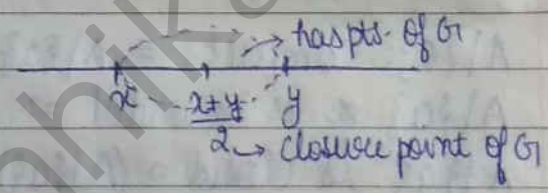 → has pts. of G
x x+y/2 y
→ closure point of G